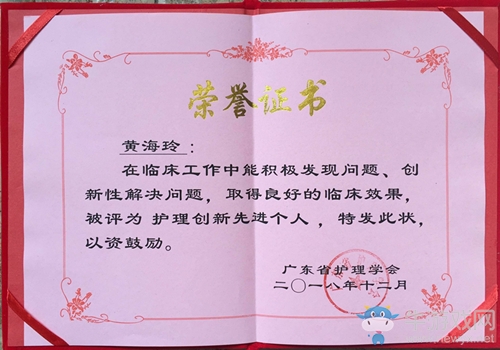 荣誉证书
黄海玲：
在临床工作中能积极发现问题、创
新性解决问题，取得良好的临床效果，
被评为 护理创新先进个人 ，特发此状，
以资鼓励。
广东省护理学会
二〇一八年十二月